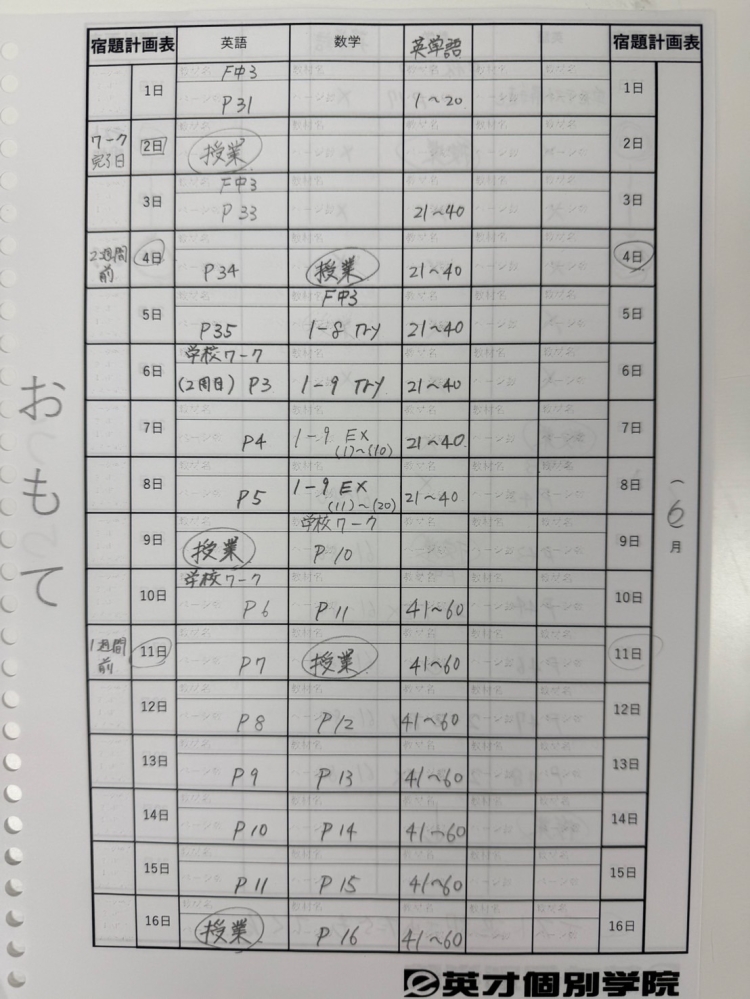 宿題計画表 英語 数学 英単語 宿題計画表
F中3
1日 P31 1~20 1日
ワーク完了日 2日 授業 2日
F中3
3日 P33 21~40 3日
2週間前 4日 P34 授業 21~40 4日
F中3
5日 P35 1-8 Try 21~40 5日
学校ワーク
6日 (2周目) P3 1-9 Try 21~40 6日
7日 P4 1-9 EX (1)~(10) 21~40 7日
8日 P5 1-9 EX (11)~(20) 21~40 8日
学校ワーク
9日 授業 P10 9日
学校ワーク
10日 P6 P11 41~60 10日
1週間前 11日 P7 授業 41~60 11日
12日 P8 P12 41~60 12日
13日 P9 P13 41~60 13日
14日 P10 P14 41~60 14日
15日 P11 P15 41~60 15日
16日 授業 P16 41~60 16日
6月
おもて
英才個別学院